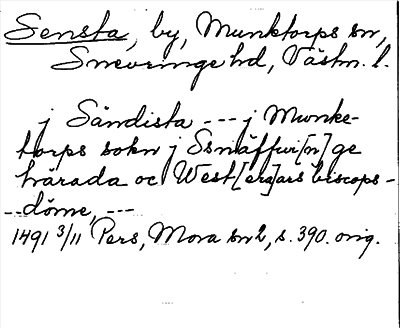 Sensta, by, Munktorps sn,
Snevringe hd, Västm. l.
j Sändista --- j Munke-
torps sokn j Ssnäffwi[n]ge
härada oc West[er]ars biscops-
--döme, ---
1491 3/11 Pers, Mora sn 2, s. 390. orig.